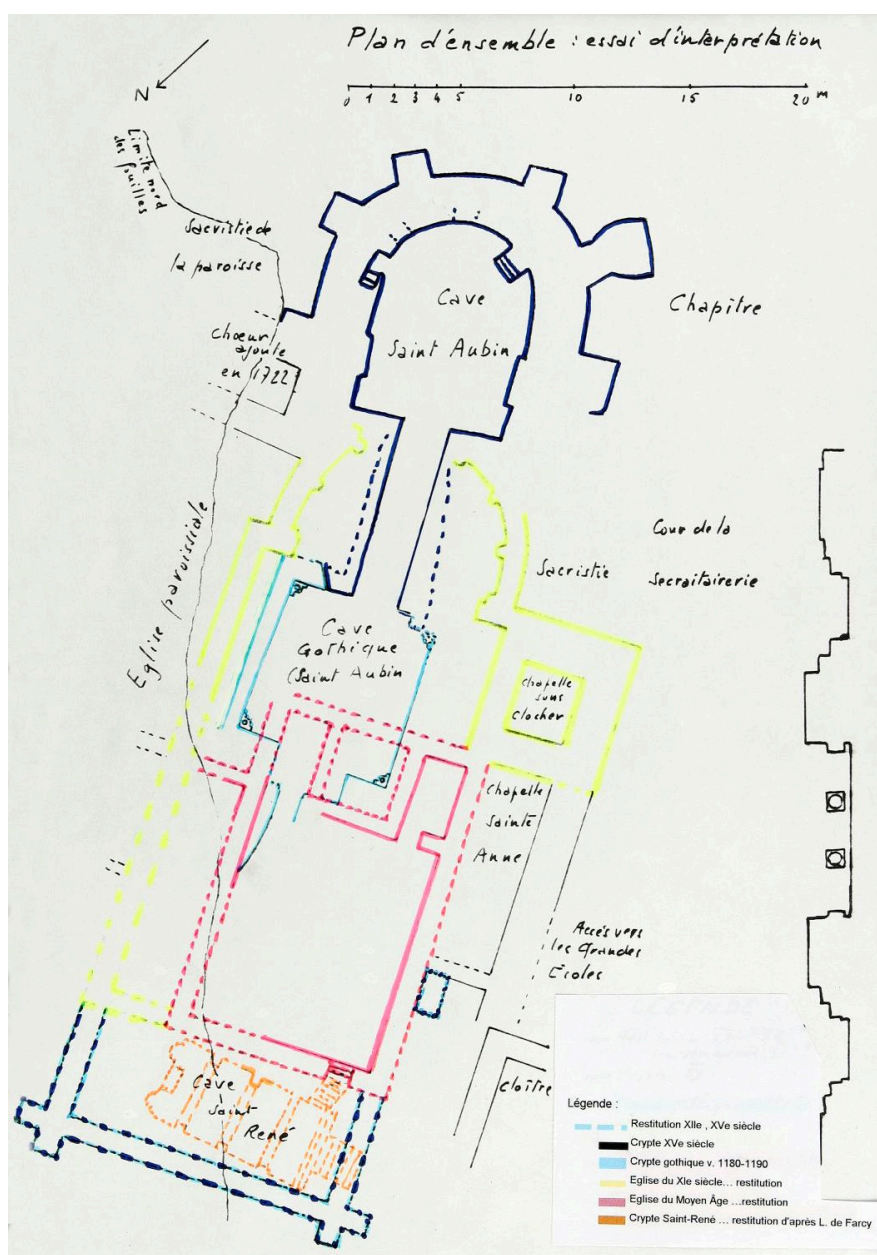 Plan d'ensemble : essai d'interprétation
N
0 1 2 3 4 5 10 15 20 m
Limite nord
des fouilles
Sacristie de
la paroisse
Chœur
ajouté
en 1722
Cave
Saint Aubin
Chapître
Eglise paroissiale
Cave
Gothique
(Saint Aubin
Sacristie
Cour de la
Secraitairerie
Chapelle
sous
clocher
Chapelle
Sainte
Anne
Accès vers
les Grandes
Ecoles
Cloître
Cave
Saint
René
Légende :
Restitution XIIe , XVe siècle
Crypte XVe siècle
Crypte gothique v. 1180-1190
Eglise du XIe siècle... restitution
Eglise du Moyen Âge ...restitution
Crypte Saint-René ... restitution d'après L. de Farcy